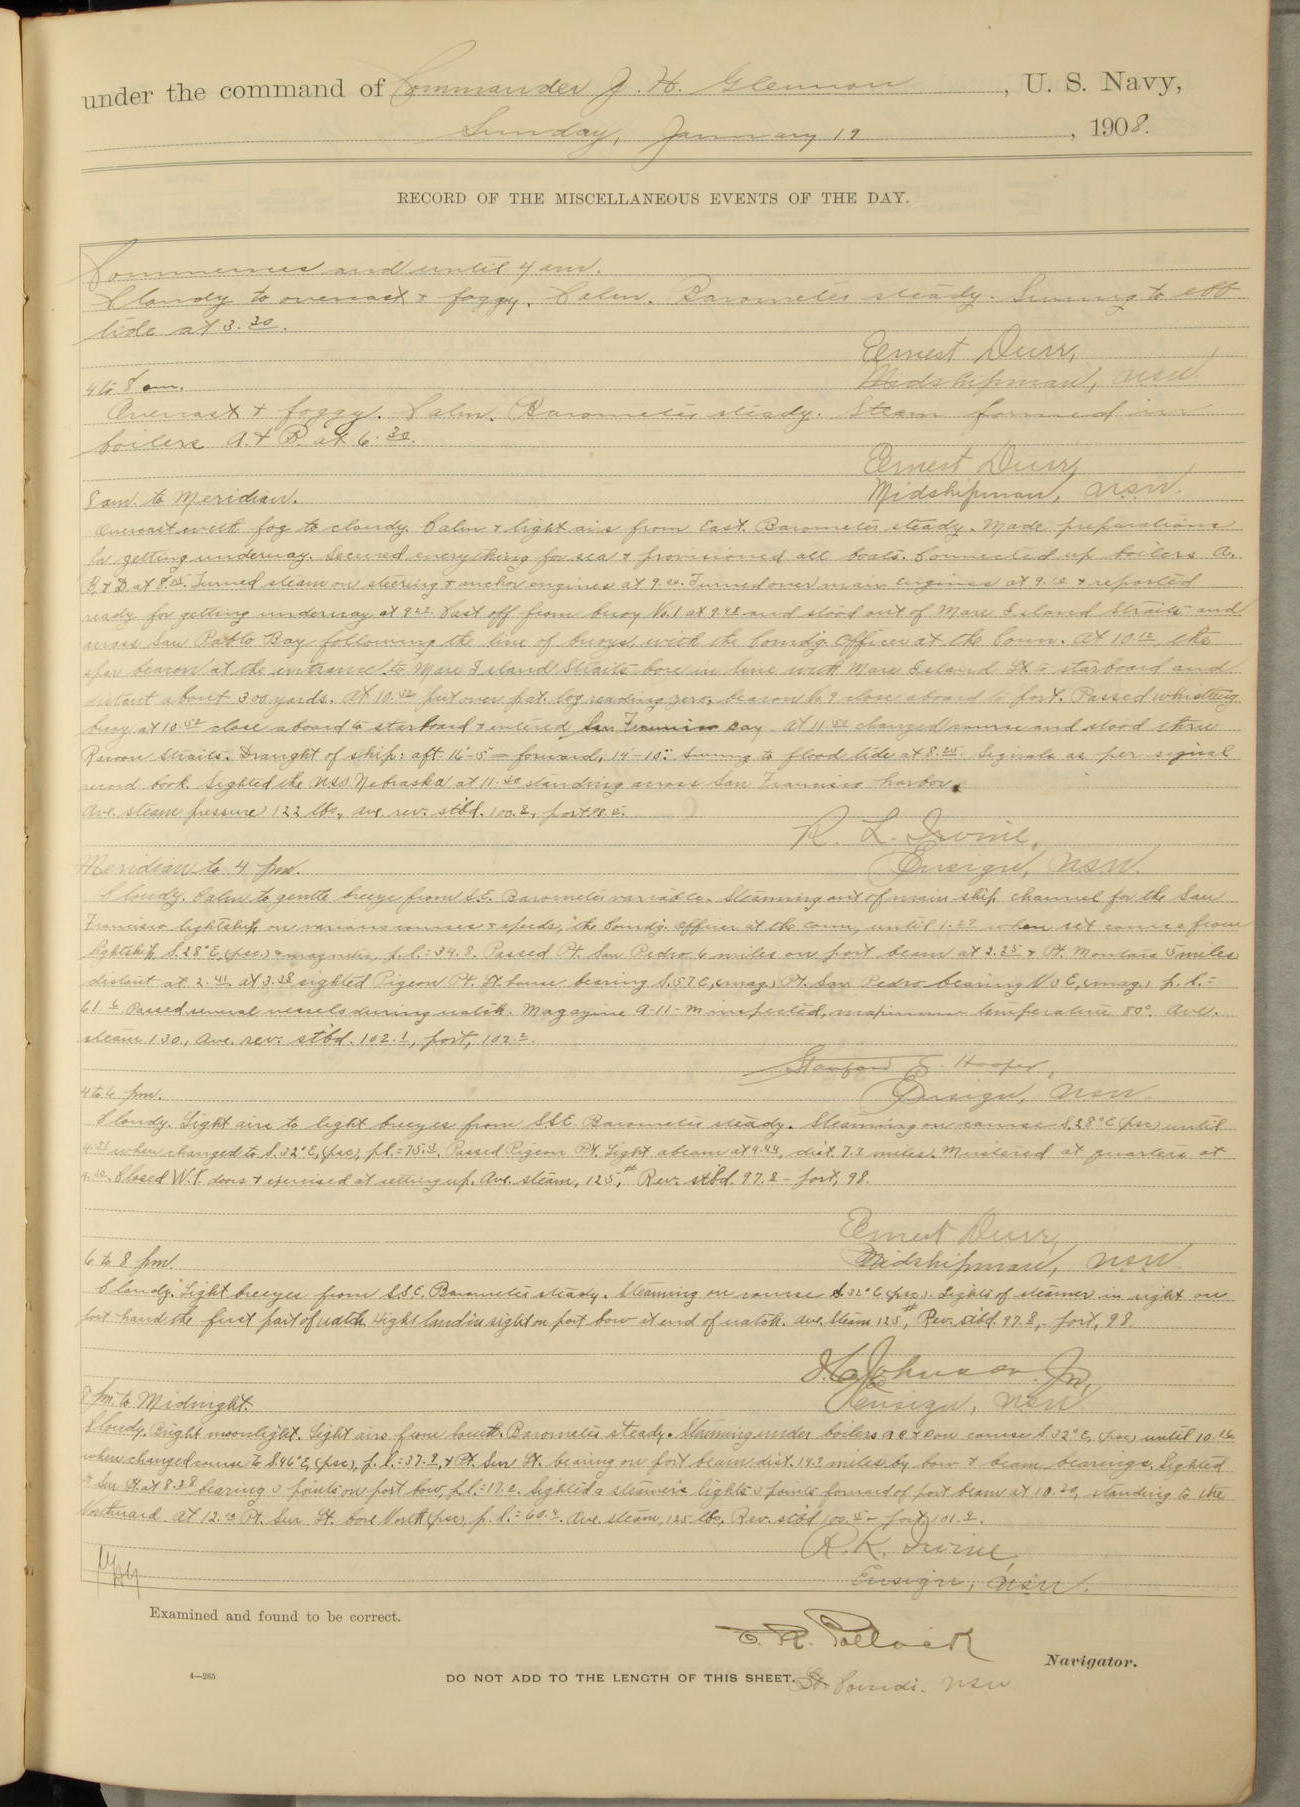 under the command of Commander J. H. Glennon, U. S. Navy,
Sunday, January 19, 1908.
RECORD OF THE MISCELLANEOUS EVENTS OF THE DAY.
Commences and until 4 am.
Cloudy to overcast & foggy. Calm. Barometer steady. Swung to ebb
tide at 3.30.
Ernest Durr,
Midshipman, USN.
4 to 8 am.
Overcast & foggy. Calm. Barometer steady. Steam formed in
boilers A. & B. at 6.30.
Ernest Durr,
Midshipman, USN.
8 am. to Meridian.
Overcast with fog to cloudy. Calm & light airs from East. Barometer steady. Made preparations
for getting underway. Secured everything for sea & provisioned all boats. Connected up boilers A.
B. & D at 8. Turned steam on steering & anchor engines at 9. Turned over main engines at 9. & reported
ready for getting underway at 9. Cast off from buoy No. 1 at 9.48 and stood out of Mare Island Straits and
across San Pablo Bay following the line of buoys, with the Comd'g Officer at the Conn. At 10.12, the
spar beacon at the entrance to Mare Island Straits bore in line with Mare Island Lt. to starboard and
distant about 300 yards. At 10. put over pat. log reading zero, beacon No 9 close aboard to port. Passed whistling
buoy at 10.52 close aboard to starboard & entered San Francisco Bay. At 11.50 changed course and stood thru
Racoon Straits. Draught of ship: aft 16'-5" forward, 14'-10". Swung to flood tide at 8.25. Signals as per signal
record book. Sighted the USS Nebraska at 11.40 standing across San Francisco harbor.
Ave. steam pressure 122 lbs., ave. rev. stbd. 100.8, port 98.
R. L. Irvine,
Ensign, USN.
Meridian to 4 pm.
Cloudy. Calm to gentle breeze from S.E. Barometer variable. Steaming out of main ship channel for the San
Francisco lightship on various courses & speeds, the Comd'g Officer at the conn, until 1. when set course from
lightship S.28°E (psc) & magnetic, p.l. = 34.8. Passed Pt. San Pedro 6 miles on port beam at 2.25 & Pt. Montara 5 miles
distant at 2.41. At 3.38 sighted Pigeon Pt. Lt. house bearing S.57E, (mag.) Pt. San Pedro bearing N 3 E, (mag.) p.l. =
61.6 Passed several vessels during watch. Magazine A-11-M inspected, maximum temperature 80°. Ave.
steam 130, Ave. rev. stbd. 102.1, port, 102.2.
Stanford C. Hooper,
Ensign, USN.
4 to 6 pm.
Cloudy. Light airs to light breezes from SSE. Barometer steady. Steaming on course S.28°E (psc) until
4. when changed to S.32°E, (psc), p.l. = 75. Passed Pigeon Pt. Light abeam at 4.44, dist. 7.7 miles. Mustered at quarters at
4.30. Closed W.T. doors & exercised at setting up. Ave. steam, 125#, Rev. stbd. 97.8 - port, 98.
Ernest Durr,
Midshipman, USN.
6 to 8 pm.
Cloudy. Light breezes from SSE. Barometer steady. Steaming on course S.32°E (psc). Lights of steamer in sight on
port hand the first part of watch. High land in sight on port bow at end of watch. Ave. Steam 125#, Rev. stbd. 97.8, - port, 98.
Johnson. Jr.,
Ensign, USN.
8 pm. to Midnight.
Cloudy. Bright moonlight. Light airs from South. Barometer steady. Steaming under boilers on course S.32°E, (psc) until 10.16
when changed course to S.46°E, (psc), p.l. = 37.9, & Pt. Sur Lt. bearing on port beam dist. 14.2 miles by bow & beam bearings. Sighted
Pt Sur Lt. at 8.38 bearing 3 points on port bow, p.l. = 17.2. Sighted a steamers lights 3 points forward of port beam at 10.30, standing to the
Northward. At 12. Pt. Sur Lt. bore North (psc), p.l. = 60. Ave. steam, 125 lbs, Rev. stbd 100. - port 101.
R. L. Irvine
Ensign, USN.
Examined and found to be correct.
E. R. Pollock
Navigator.
4—265
DO NOT ADD TO THE LENGTH OF THIS SHEET.
Lt. Comdr. USN